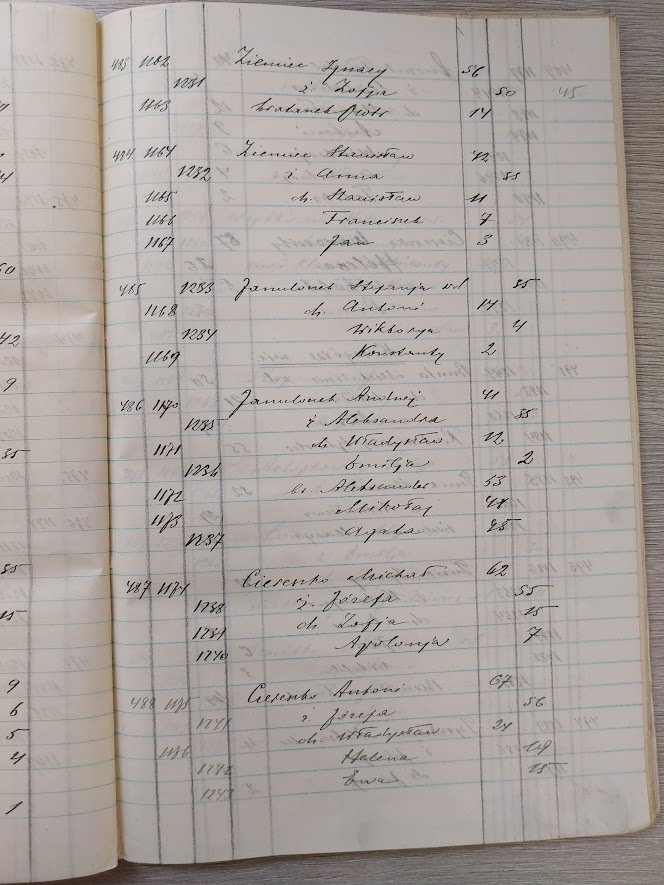 483 1162 Ziemiec Ignacy 56
1231 ż Zofja 50 45
1163 Piotr 14
484 1164 Ziemiec Stanisław 42
1232 ż Anna 35
1165 ch Stanisław 11
1166 Franciszek 7
1167 Jan 3
485 1233 Janulonek Stefanja wd 35
1168 ch Antoni 14
1234 Wiktorya 4
1169 Konstanty 2
486 1170 Janulonek Andrzej 41
1235 ż Aleksandra 35
1171 ch Władysław 12
1236 Emilja 2
1172 br. Aleksander 53
1173 Mikołaj 47
1237 Agata 45
487 1174 Cierenko Michał 62
1238 ż Józefa 55
1239 ch Zofja 15
1240 Apolonja 7
488 1175 Cierenko Antoni 67
1241 ż Józefa 56
1176 ch Władysław 24
1242 Helena 19
1243 Ewa 15